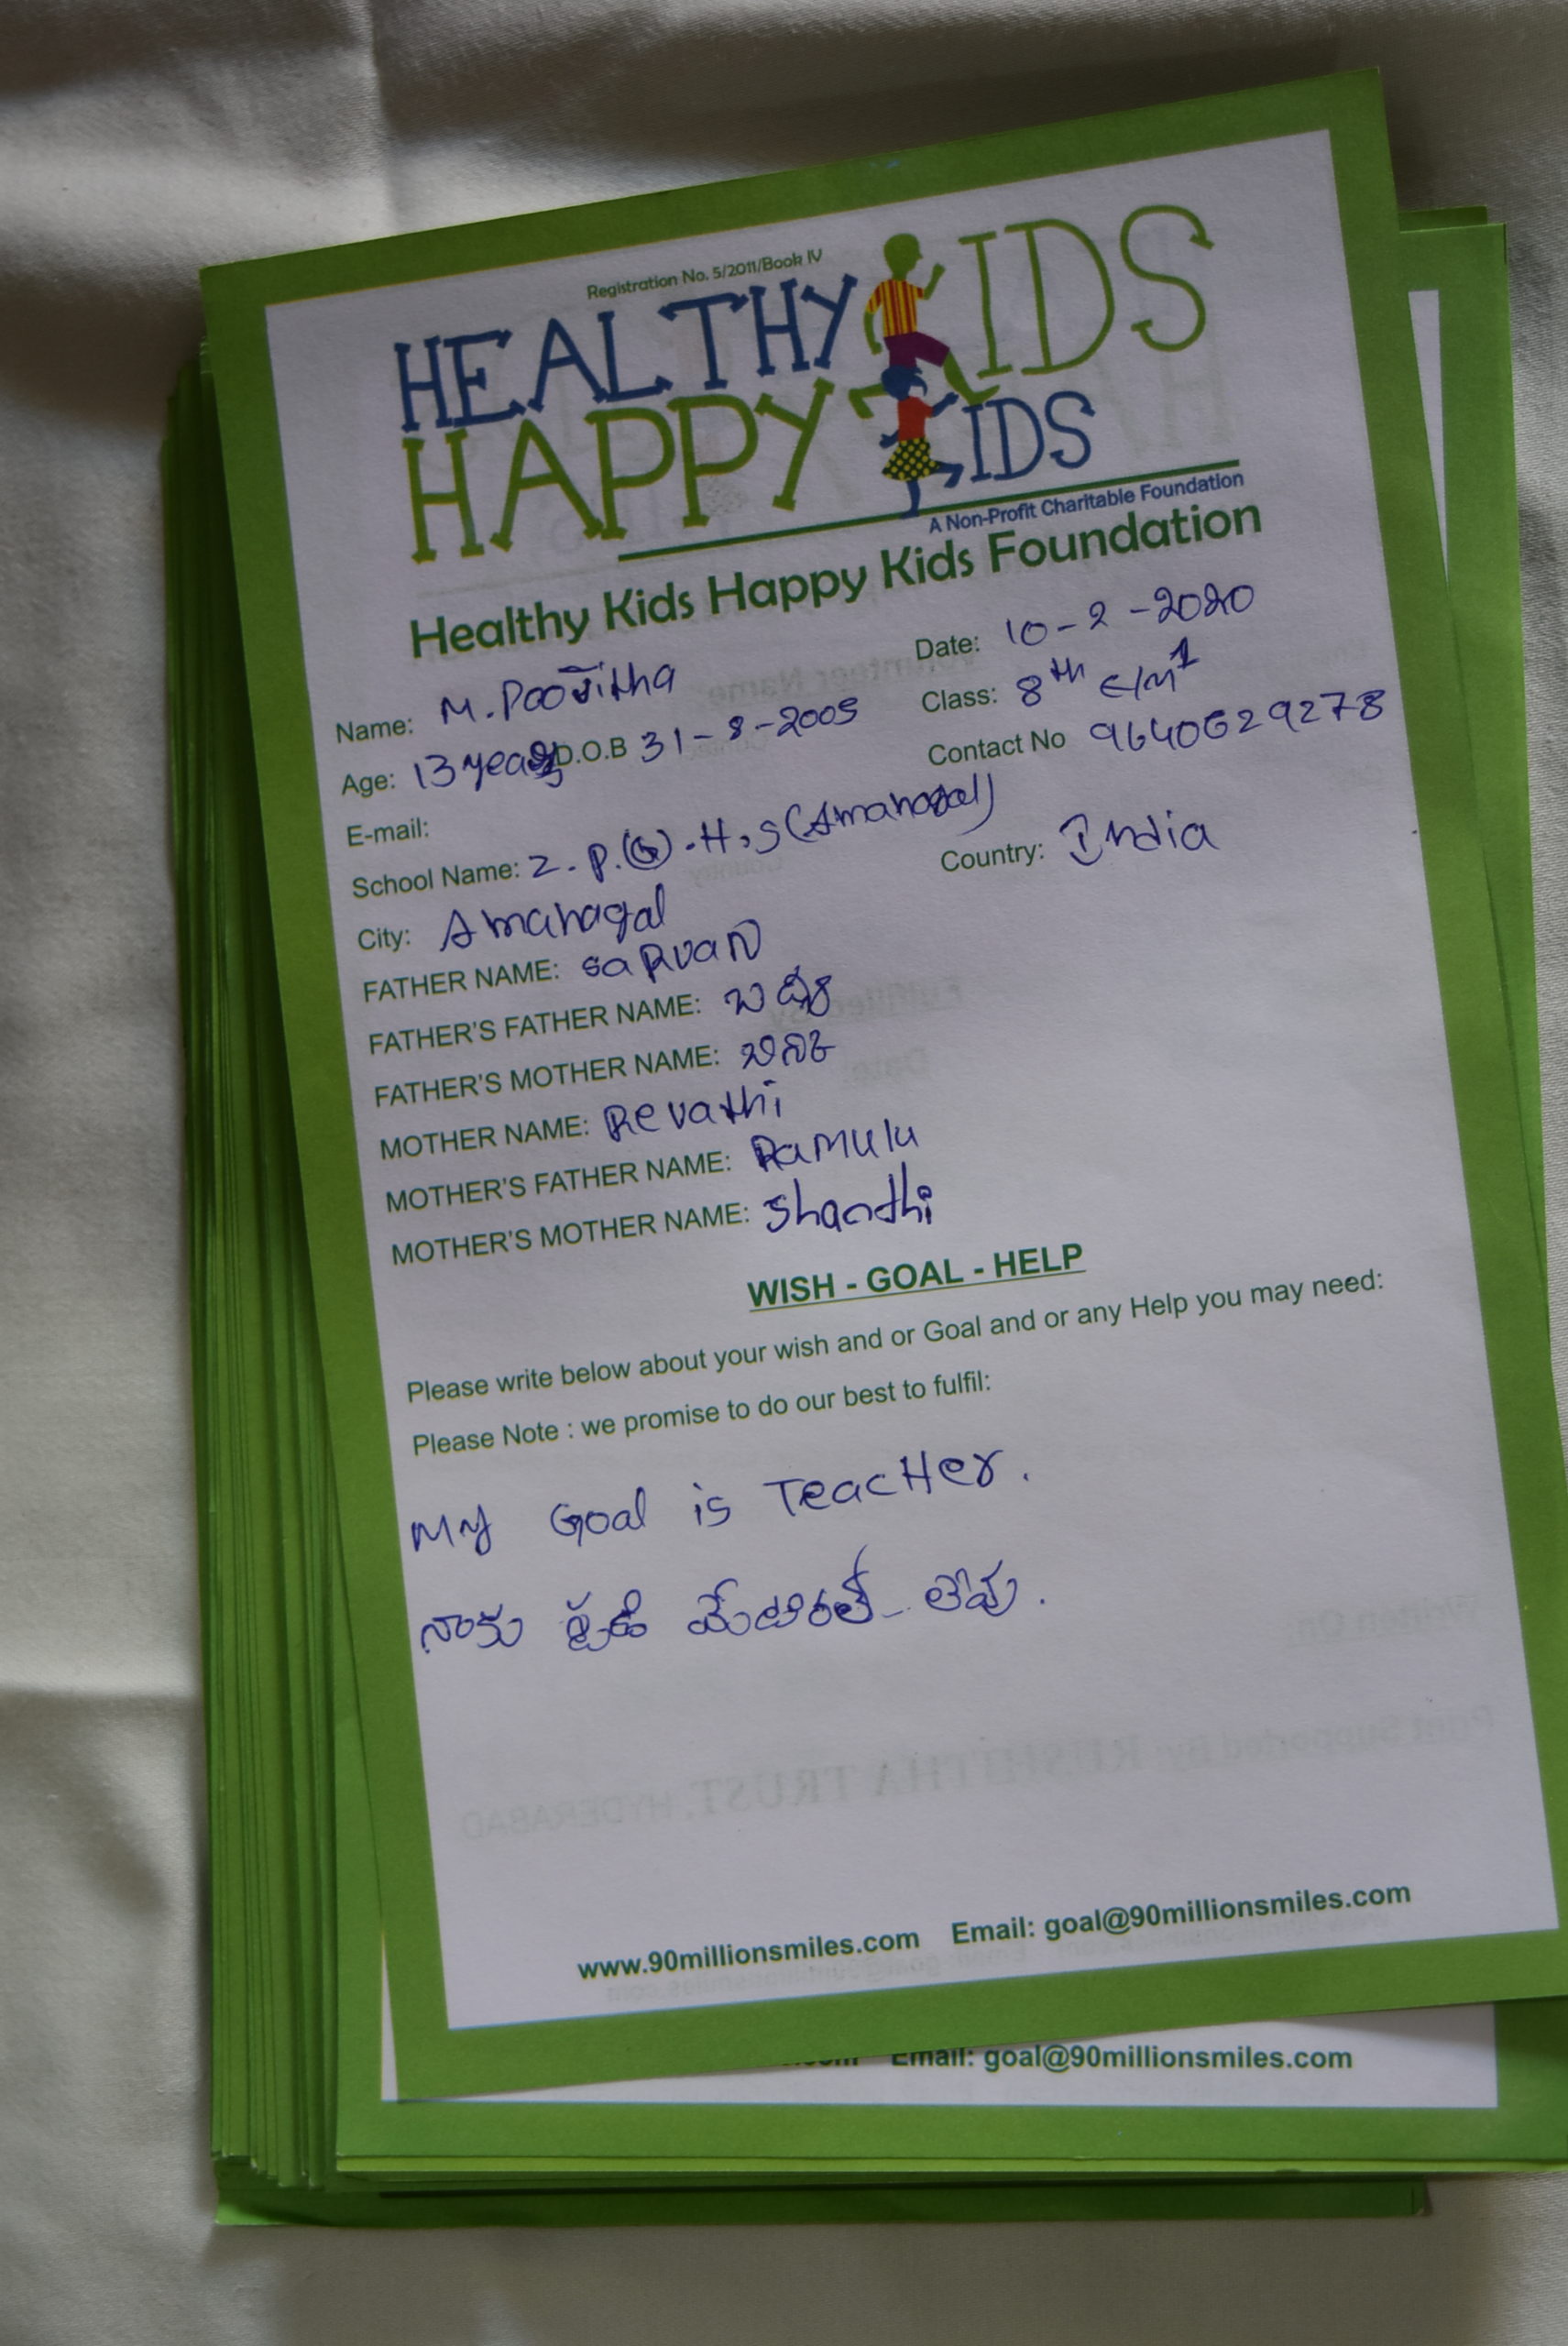 Registration No. 5/2011/Book IV
HEALTHY KIDS
HAPPY KIDS
A Non-Profit Charitable Foundation
Healthy Kids Happy Kids Foundation
Date: 10-2-2020
Name: M. Poojitha
Class: 8th E/M
Age: 13 years D.O.B 31-8-2005
Contact No 9640629278
E-mail:
School Name: Z.P.(G).H.S (Amanagal)
City: Amanagal
Country: India
FATHER NAME: SaRvan
FATHER'S FATHER NAME:
FATHER'S MOTHER NAME:
MOTHER NAME: Revathi
MOTHER'S FATHER NAME: Ramulu
MOTHER'S MOTHER NAME: Shandhi
WISH - GOAL - HELP
Please write below about your wish and or Goal and or any Help you may need:
Please Note : we promise to do our best to fulfil:
My Goal is TeacHer.
నాకు స్టడి మేటిరల్ లేవు.
www.90millionsmiles.com Email: goal@90millionsmiles.com
Email: goal@90millionsmiles.com